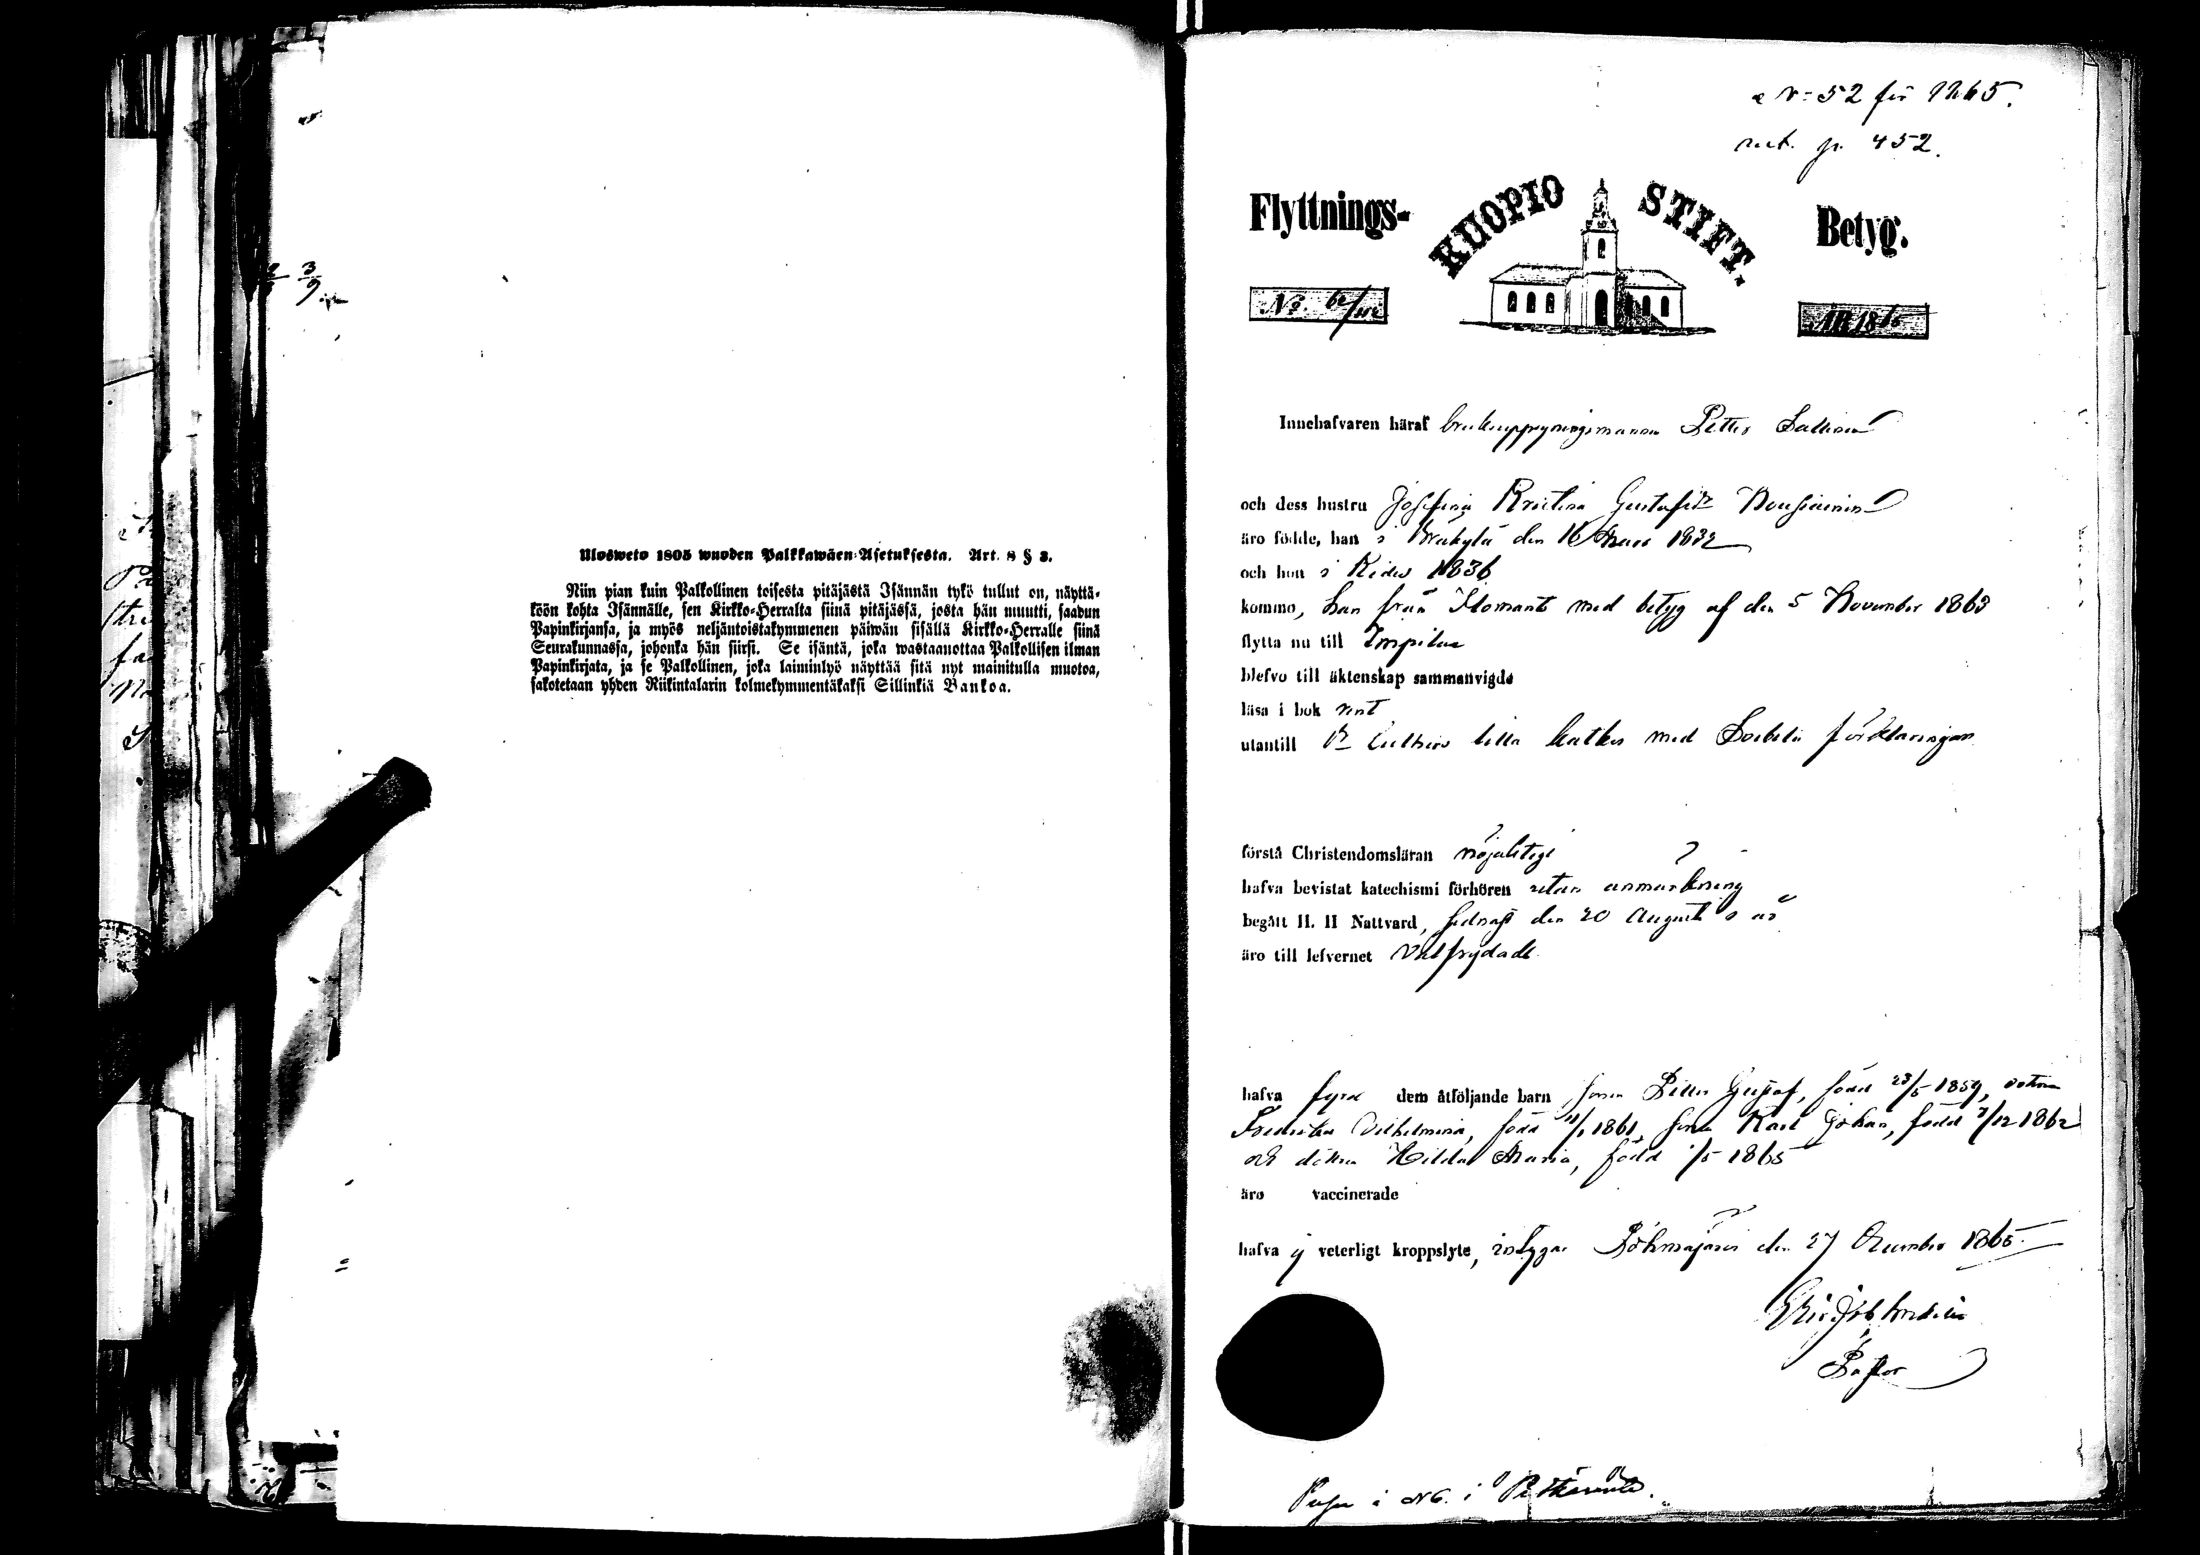 Ulosweto 1805 wuoden Palkkawäen-Asetuksesta. Art. 8 § 3.
Niin pian kuin Palkollinen toisesta pitäjästä Isännän tykö tullut on, näyttä-
köön kohta Isännälle, sen Kirkko-Herralta siinä pitäjässä, josta hän muutti, saadun
Papinkirjansa, ja myös neljäntoistakymmenen päiwän sisällä Kirkko-Herralle siinä
Seurakunnassa, johonka hän siirsi. Se isäntä, joka wastaanottaa Palkollisen ilman
Papinkirjata, ja se Palkollinen, joka laiminlyö näyttää sitä nyt mainitulla muotoa,
sakotetaan yhden Riikintalarin kolmekymmentäkaksi Sillinkiä Bankoa.
N: 52 för 1865.
p. 452.
Flyttnings- KUOPIO STIFT. Betyg.
No. ÅR 1865
Innehafvaren häraf Petter
och dess hustru Josefina Kristina Gustafsdr
äro födde, han i Bräkylä den 16 Mars 1832
och hon i Kides 1836
komma, han från Ilomants med betyg af den 5 November 1863
flytta nu till Impilax
blefvo till äktenskap sammanvigde
läsa i bok rent
utantill Dr Luthers lilla katkes med Svebelii förklaringar
förstå Christendomsläran nöjaktigt
hafva bevistat katechismi förhören utan anmärkning
begått H. H Nattvard, sednast den 20 Augusti d. år
äro till lefvernet välfrejdade
hafva fyra dem åtföljande barn, sonen Petter Gustaf, född 23/5 1859, dottren
Fredrika Vilhelmina, född 1861, sonen Karl Johan, född 7/12 1862
och dottren Hilda Maria, född 1/5 1865
äro vaccinerade
hafva ej veterligt kroppslyte, intygar Pelkmajärvi den 27 December 1865.
Pastor
i No. 6. i Pitkäranta.